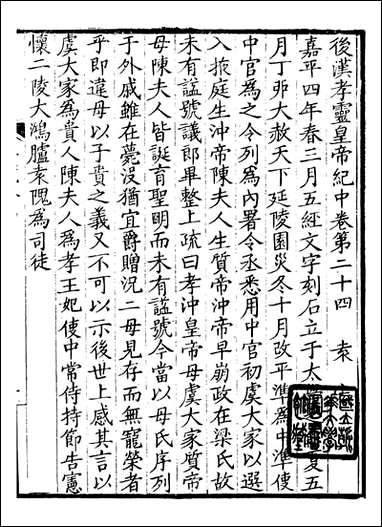 後漢孝靈皇帝紀中卷第二十四　袁
嘉平四年春三月五經文字刻石立于太　　夏五
月丁卯大赦天下延陵園災冬十月改平準為中準使
中官為之令列為內署令丞悉用中官初虞大家以選
入掖庭生沖帝陳夫人生質帝沖帝早崩政在梁氏故
未有謚號議郎畢整上疏曰孝沖皇帝母虞大家質帝
母陳夫人皆誕育聖明而未有謚號今當以母氏序列
于外戚雖在薨沒猶宜爵贈況二母見存而無寵榮者
乎即違母以子貴之義又不可以示後世上感其言以
虞大家為貴人陳夫人為孝王妃使中常侍持節告憲
懷二陵大鴻臚袁隗為司徒